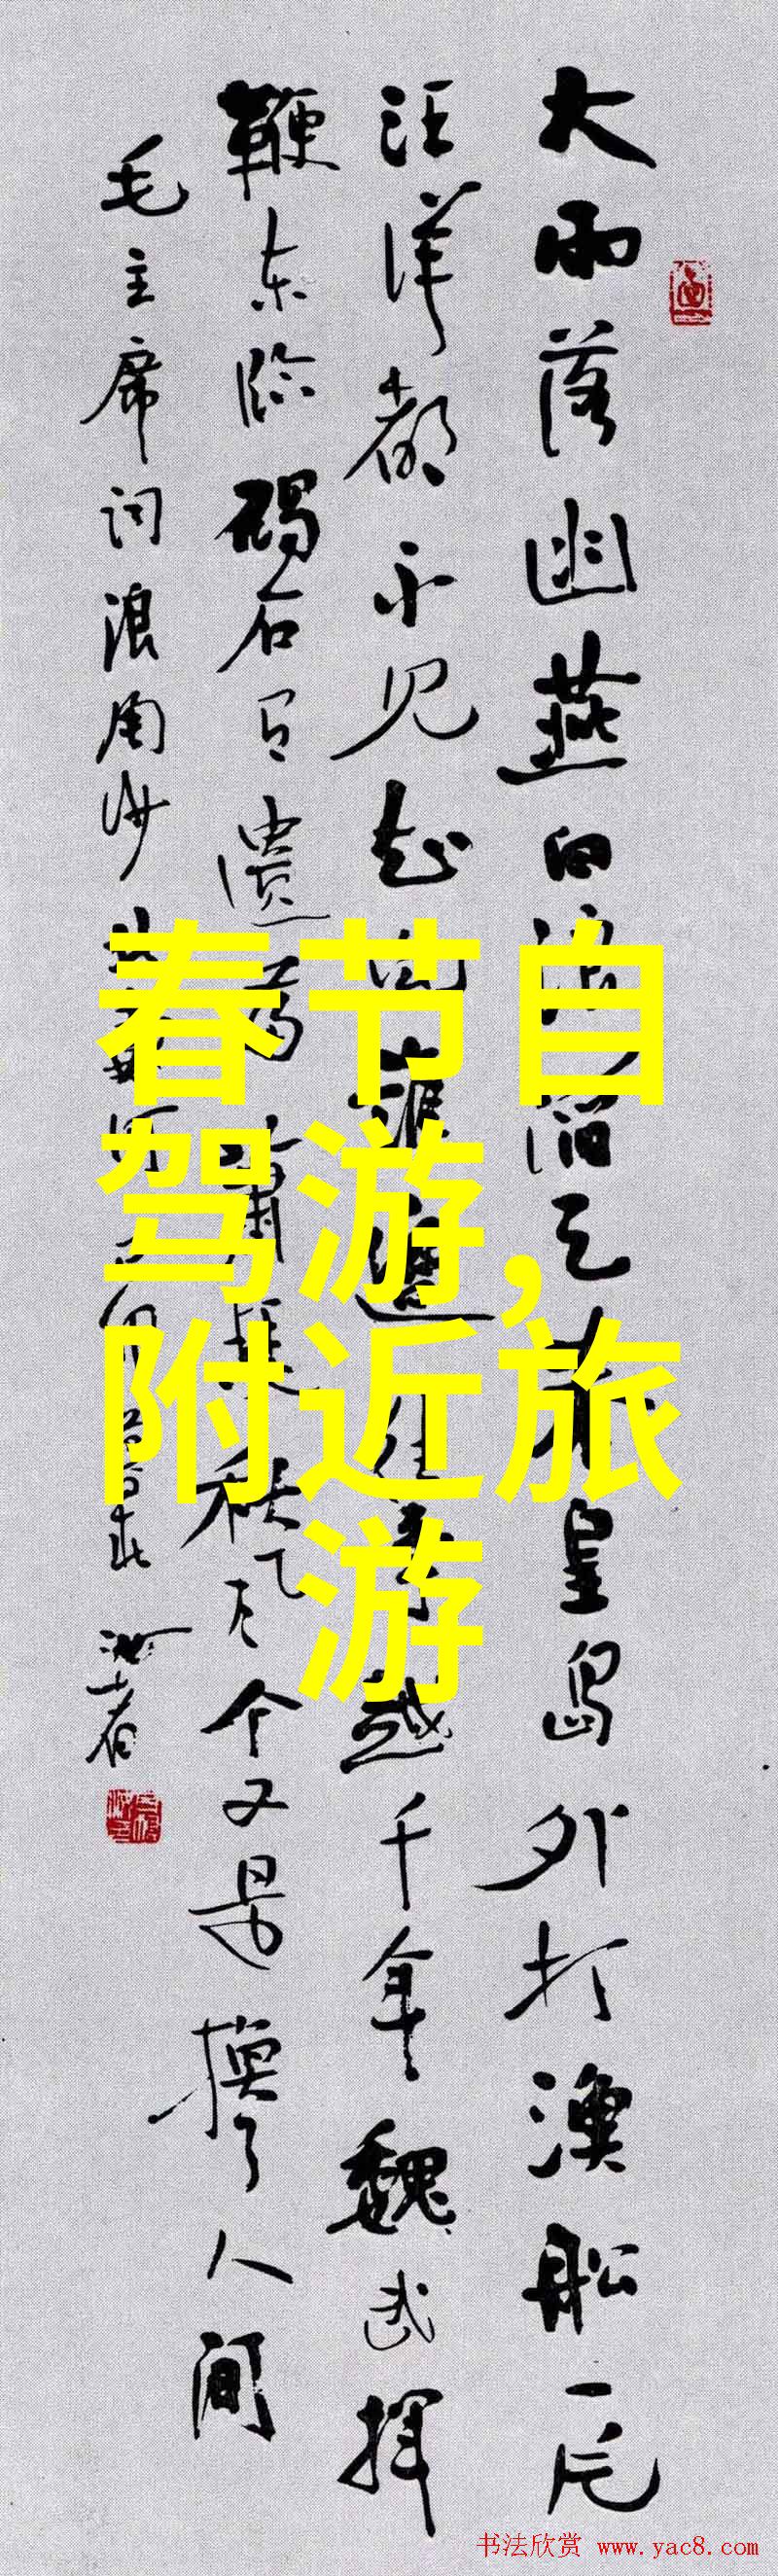 大雨落幽燕白浪滔天秦皇岛外打渔船一片
汪洋都不见知向谁边往事越千年魏武挥
鞭东临碣石有遗篇萧瑟秋风今又是换了人间
毛主席词浪淘沙
春节自
驾游,
附近旅
游
书法欣赏 www.yac8.com